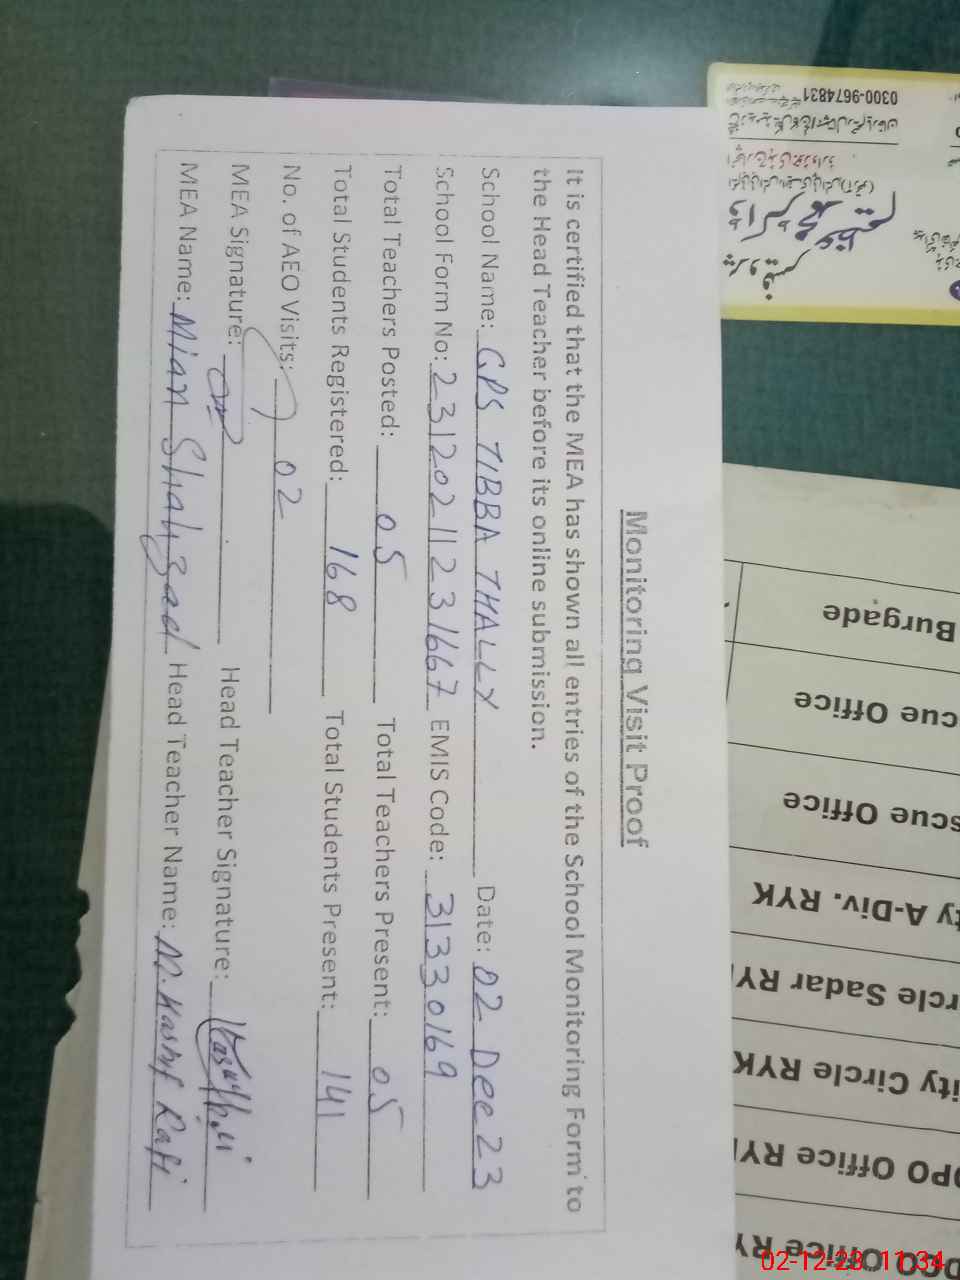 Monitoring Visit Proof
It is certified that the MEA has shown all entries of the School Monitoring Form to
the Head Teacher before its online submission.
School Name: GPS TIBBA THALLY Date: 02 Dec 23
School Form No: 23120211231667 EMIS Code: 31330169
Total Teachers Posted: 05 Total Teachers Present: 05
Total Students Registered: 168 Total Students Present: 141
No. of AEO Visits: 02
MEA Signature: Head Teacher Signature:
MEA Name: Mian Shahzad Head Teacher Name: M. Kashif Rafi
0300-9674831
Burgade
cue Office
scue Office
ty A-Div. RYK
rcle Sadar RY
ity Circle RYK
DPO Office RY
DCO Office RY
02-12-23 11:34